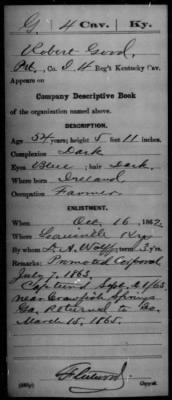 G. 4 Cav. Ky.
Robert Good,
Pvt., Co. D. 4 Reg't Kentucky Cav.
Appears on
Company Descriptive Book
of the organization named above.
DESCRIPTION.
Age 54 years; height 5 feet 11 inches.
Complexion Dark
Eyes Blue; hair Dark.
Where born Ireland
Occupation Farmer
ENLISTMENT.
When Oct. 16, 1862.
Where Louisville Ky.
By whom L. A. Wolff; term 3 y'rs.
Remarks: Promoted Corporal
July 7, 1863.
Captured Sept. 21/63,
near Crawfish Springs
Ga. Returned to Co.
March 15, 1865.
Copyist.